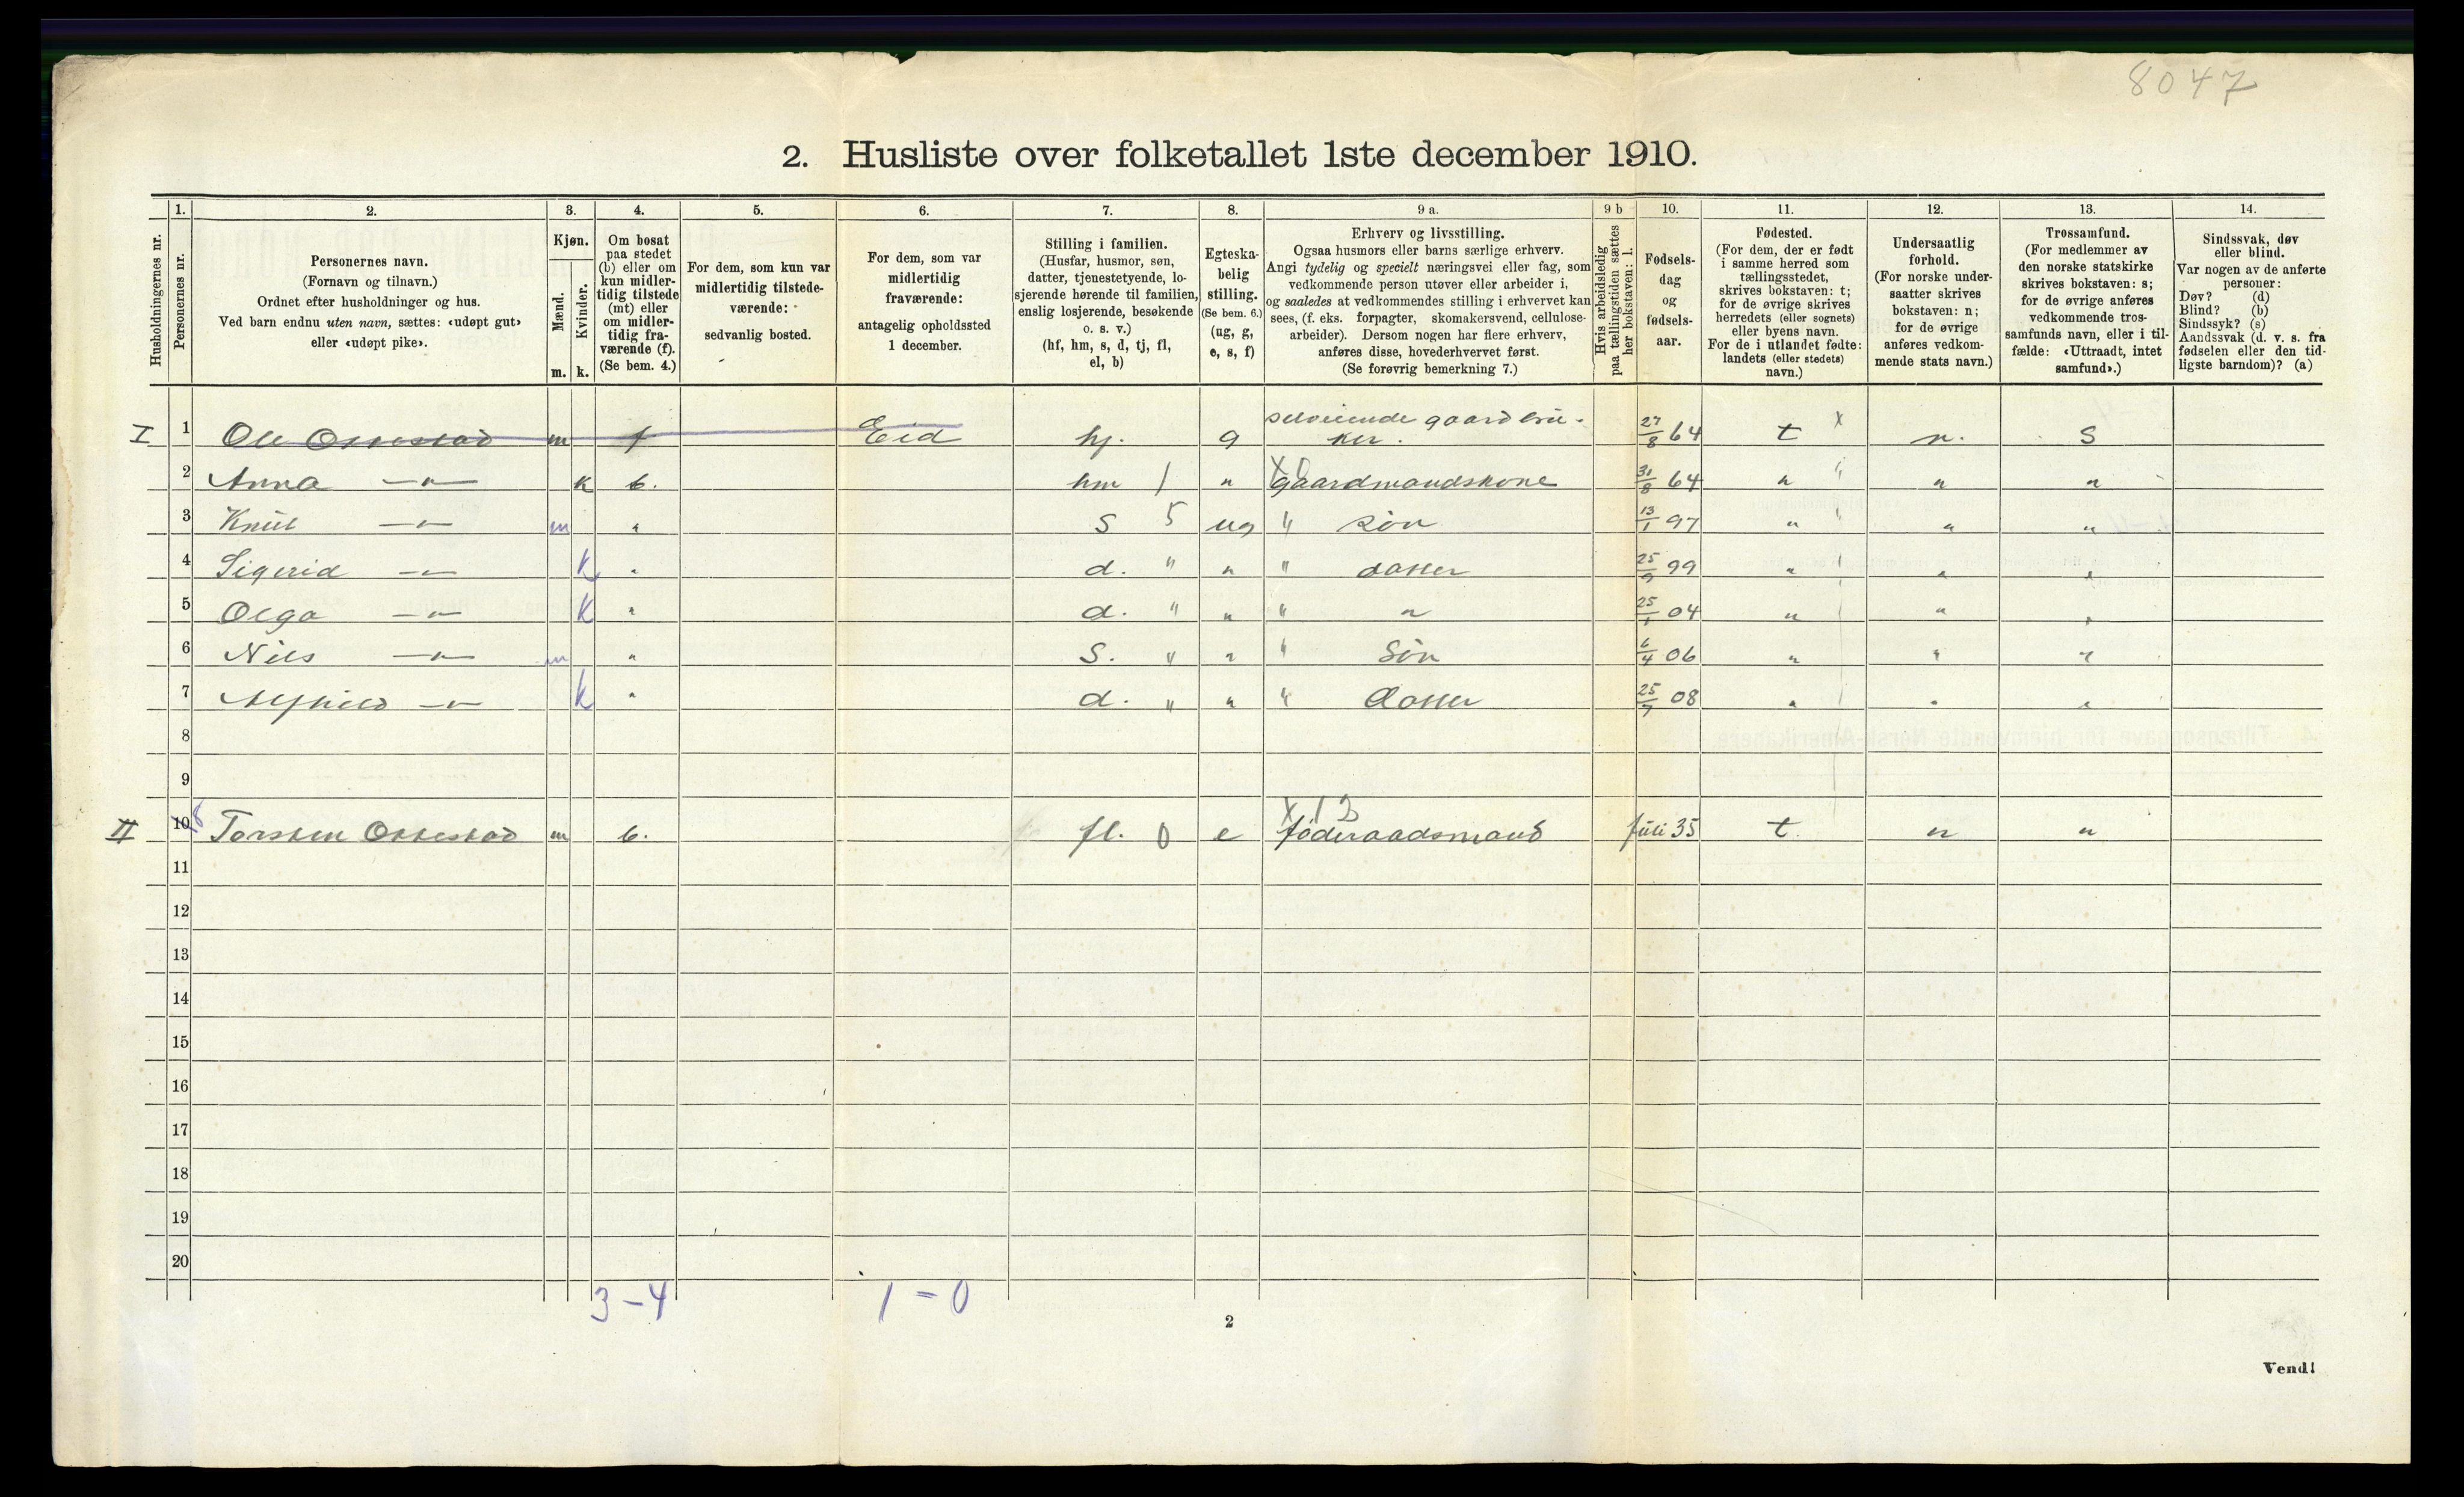 8047
2. Husliste over folketallet 1ste december 1910.
Husholdningernes nr.
1.
Personernes nr.
2.
Personernes navn.
(Fornavn og tilnavn.)
Ordnet efter husholdninger og hus.
Ved barn endnu uten navn, sættes: «udøpt gut»
eller «udøpt pike».
3.
Kjøn.
Mænd.
Kvinder.
m. k.
4.
Om bosat
paa stedet
(b) eller om
kun midler-
tidig tilstede
(mt) eller
om midler-
tidig fra-
værende (f).
(Se bem. 4.)
5.
For dem, som kun var
midlertidig tilstede-
værende:
sedvanlig bosted.
6.
For dem, som var
midlertidig
fraværende:
antagelig opholdssted
1 december.
7.
Stilling i familien.
(Husfar, husmor, søn,
datter, tjenestetyende, lo-
sjerende hørende til familien,
enslig losjerende, besøkende
o. s. v.)
(hf, hm, s, d, tj, fl,
el, b)
8.
Egteska-
belig
stilling.
(Se bem. 6.)
(ug, g,
e, s, f)
9 a.
Erhverv og livsstilling.
Ogsaa husmors eller barns særlige erhverv.
Angi tydelig og specielt næringsvei eller fag, som
vedkommende person utøver eller arbeider i,
og saaledes at vedkommendes stilling i erhvervet kan
sees, (f. eks. forpagter, skomakersvend, cellulose-
arbeider). Dersom nogen har flere erhverv,
anføres disse, hovederhvervet først.
(Se forøvrig bemerkning 7.)
9 b
Hvis arbeidsledig
paa tællingstiden sættes
her bokstaven: l.
10.
Fødsels-
dag
og
fødsels-
aar.
11.
Fødested.
(For dem, der er født
i samme herred som
tællingsstedet,
skrives bokstaven: t;
for de øvrige skrives
herredets (eller sognets)
eller byens navn.
For de i utlandet fødte:
landets (eller stedets)
navn.)
12.
Undersaatlig
forhold.
(For norske under-
saatter skrives
bokstaven: n;
for de øvrige
anføres vedkom-
mende stats navn.)
13.
Trossamfund.
(For medlemmer av
den norske statskirke
skrives bokstaven: s;
for de øvrige anføres
vedkommende tros-
samfunds navn, eller i til-
fælde: «Uttraadt, intet
samfund».)
14.
Sindssvak, døv
eller blind.
Var nogen av de anførte
personer:
Døv? (d)
Blind? (b)
Sindssyk? (s)
Aandssvak (d. v. s. fra
fødselen eller den tid-
ligste barndom)? (a)
I 1 Ole m f Eid hf. g selveiende gaardbru-
ker. 27/8 64 t x n. s
2 Anna —"— k b. hm 1 " x 1 Gaardmandskone 31/8 64 " " " "
3 Knut —"— m " s 5 ug " søn 13/1 97 " " " "
4 Sigrid —"— k " d. " " " datter 25/9 99 " " "
5 Olga —"— k " d. " " " " 25/1 04 " " "
6 Nils —"— m " s. " " " Søn 6/4 06 " " "
7 —"— k " d. " " " Datter 25/7 08 " " "
8
9
II 10 8 Torsten m b. fl. 0 e x 1 3 føderaadsmand juli 35 t. n "
11
12
13
14
15
16
17
18
19
20
3 – 4 1 – 0
2
Vend!